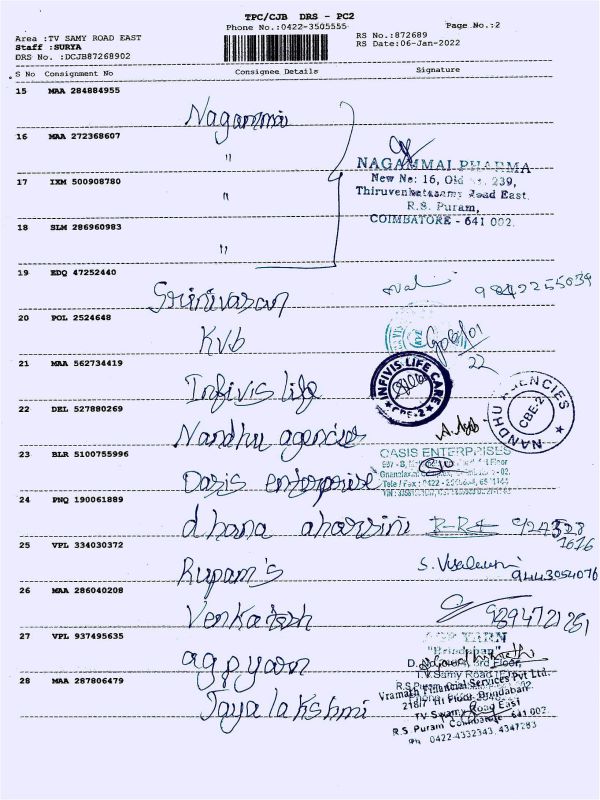 TPC/CJB DRS - PC2
Phone No.:0422-3505555
Page No.:2
Area :TV SAMY ROAD EAST
Staff :SURYA
DRS No. :DCJB87268902
RS No.:872689
RS Date:06-Jan-2022
S No Consignment No Consignee Details Signature
15 MAA 284884955
Nagammai
16 MAA 272368607
"
NAGAMMAI PHARMA
New No: 16, Old No. 239,
Thiruvenkatasamy Road East,
R.S. Puram,
COIMBATORE - 641 002.
17 IXM 500908780
"
18 SLM 286960983
"
19 EDQ 47252440
Srinivasan
20 POL 2524648
Kvb
22
21 MAA 562734419
Infivis life
INFIVIS LIFE CARE
CBE-2
22 DEL 527880269
Nandhu agencies
NANDHU AGENCIES
CBE-2
23 BLR 5100755996
Oasis enterprise
OASIS ENTERPRISES
24 PNQ 190061889
dhana
25 VPL 334030372
Rupam's
9443054076
26 MAA 286040208
Venkatesh
9894721251
27 VPL 937495635
agpyarn
AGP YARN
"Brindaban"
3rd Floor,
T.V. Samy Road
28 MAA 287806479
Jayalakshmi
Financial Services Pvt Ltd.
TV Swamy Road East
R.S. Puram Coimbatore - 641 002.
Ph 0422-4332343, 4347283